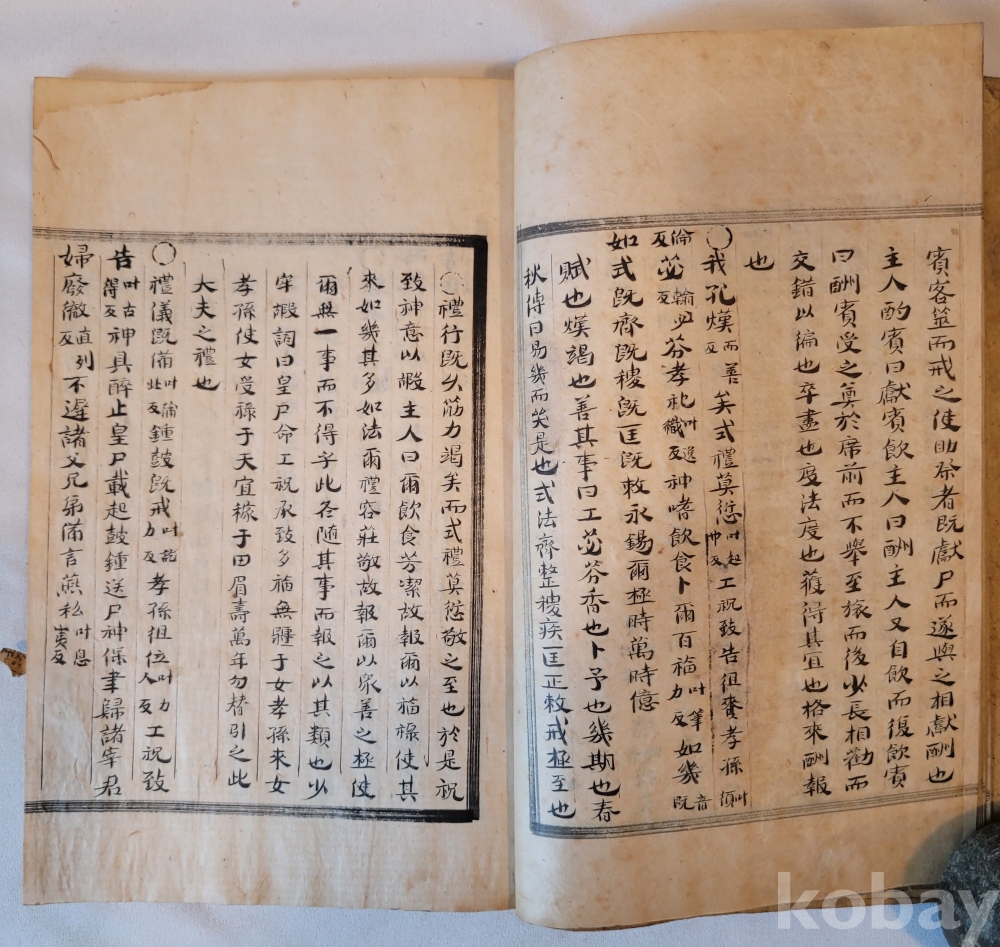 賓客筮而戒之使助祭者旣獻尸而遂與之相獻酬也
主人酌賓曰獻賓飮主人曰酬主人又自飮而復飮賓
曰酬賓受之奠於席前而不舉至旅而後少長相勸而
交錯以徧也卒盡也度法度也獲得其宜也格來酬報
也
○我孔熯而善反矣式禮莫愆叶起巾反工祝致告徂賚孝孫叶須
倫反苾蒲必反芬孝祀叶逸織反神嗜飮食卜爾百福叶筆力反如幾音旣
如式旣齊旣稷旣匡旣敕永錫爾極時萬時億
賦也熯竭也善其事曰工苾芬香也卜予也幾期也春
秋傳曰易幾而哭是也式法齊整稷疾匡正敕戒極至也
○禮行旣久筋力竭矣而式禮莫愆敬之至也於是祝
致神意以嘏主人曰爾飮食芳潔故報爾以福祿使其
來如幾其多如法爾禮容莊敬故報爾以衆善之極使
爾無一事而不得乎此各隨其事而報之以其類也少
牢嘏詞曰皇尸命工祝承致多福無疆于女孝孫來女
孝孫使女受祿于天宜稼于田眉壽萬年勿替引之此
大夫之禮也
○禮儀旣備叶蒲北反鍾鼓旣戒叶訖力反孝孫徂位叶力入反工祝致
告叶古得反神具醉止皇尸載起鼓鍾送尸神保聿歸諸宰君
婦廢徹直列反不遲諸父兄弟備言燕私叶息夷反
kobay